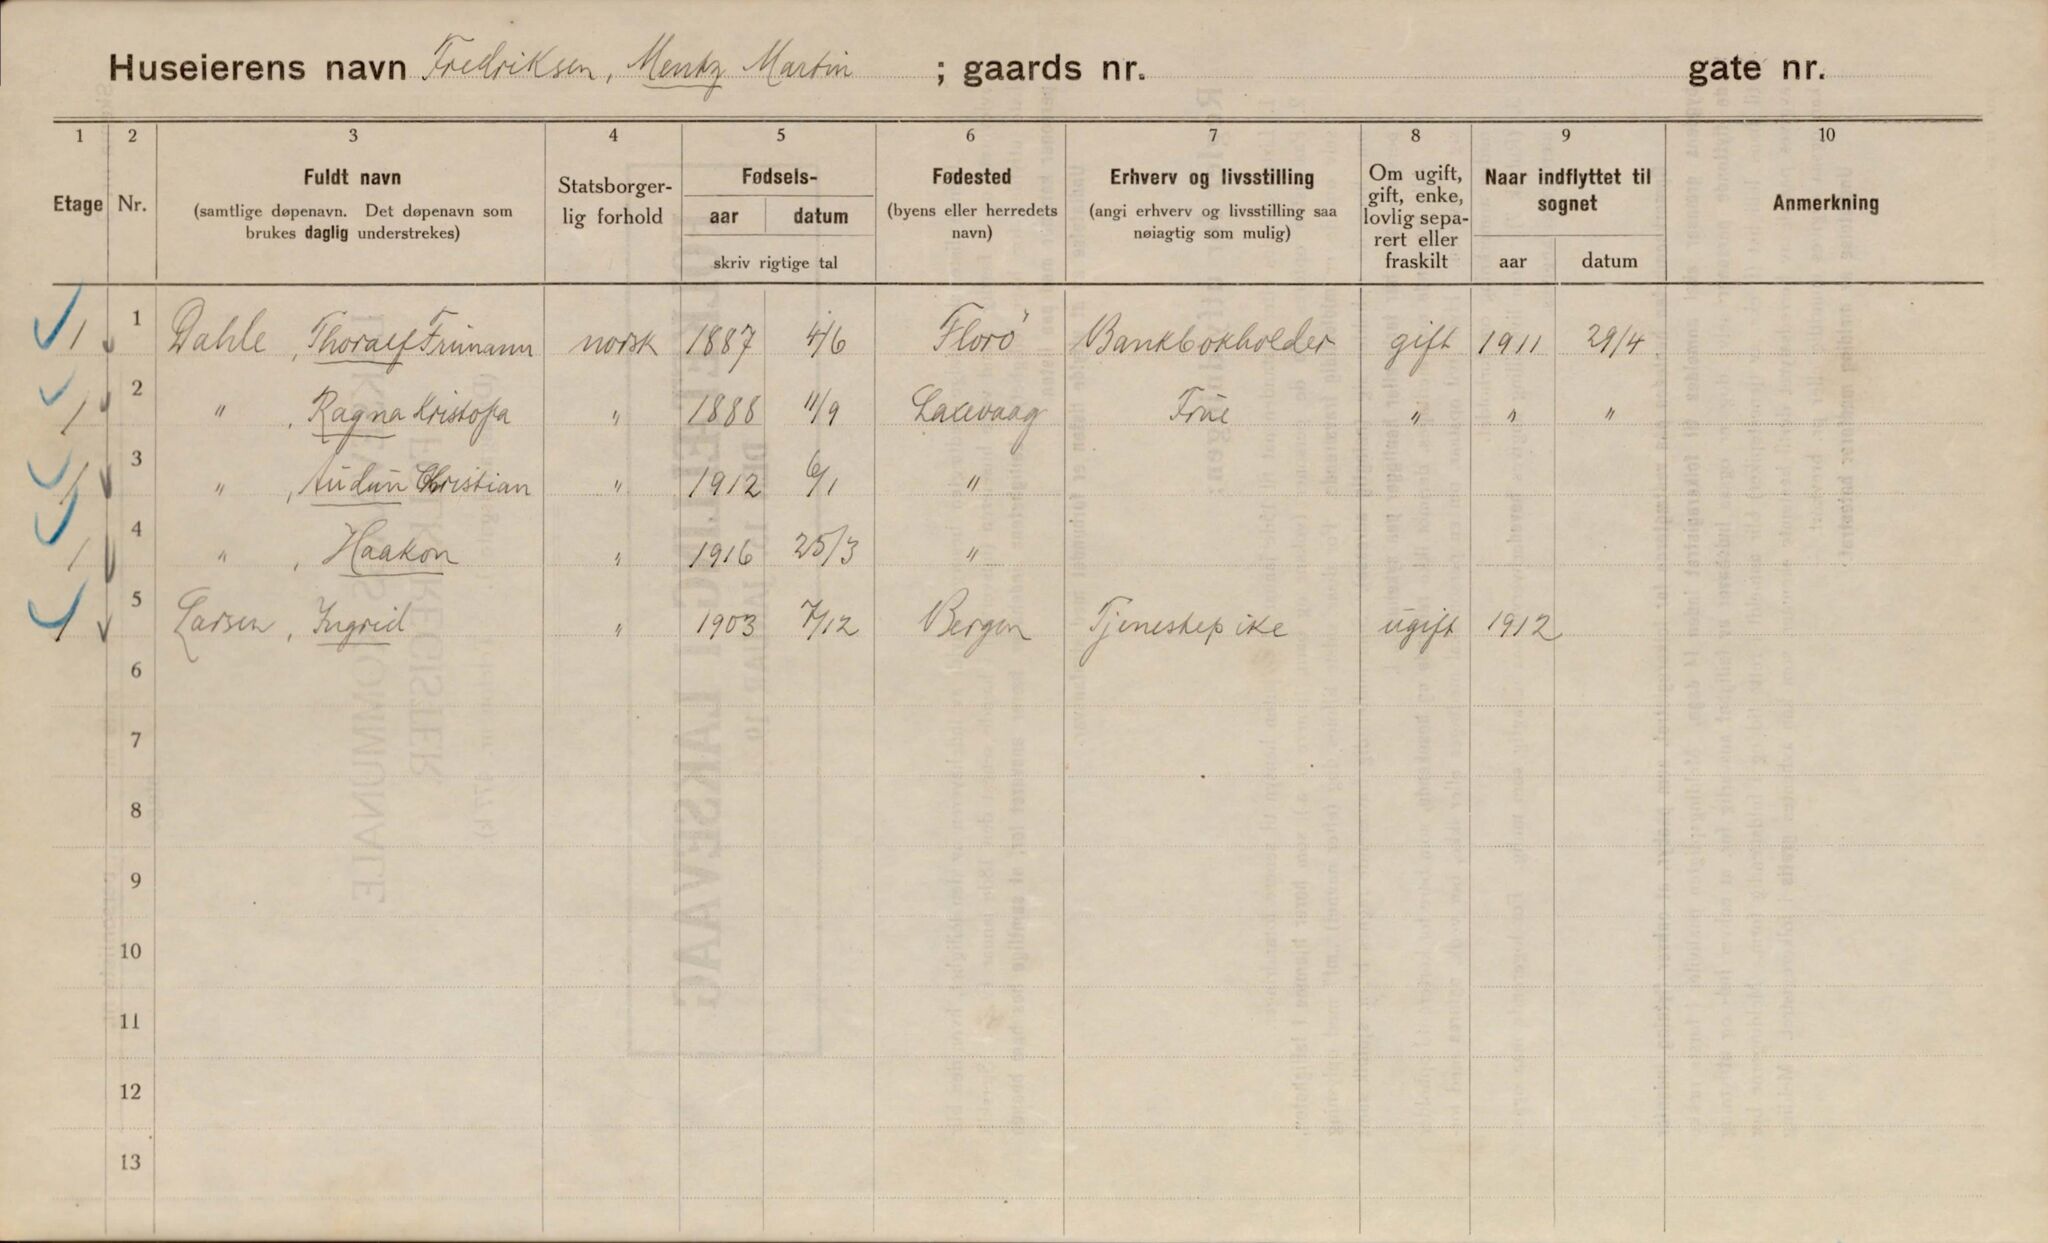 Huseierens navn Fredriksen, Mentz Martin ; gaards nr. gate nr.
1 2 3 4 5 6 7 8 9 10
Etage Nr. Fuldt navn (samtlige døpenavn. Det døpenavn som brukes daglig understrekes) Statsborger-lig forhold Fødsels- aar datum skriv rigtige tal Fødested (byens eller herredets navn) Erhverv og livsstilling (angi erhverv og livsstilling saa nøiagtig som mulig) Om ugift, gift, enke, lovlig sepa-rert eller fraskilt Naar indflyttet til sognet aar datum Anmerkning
1 1 Dahle, Thoralf Frimann norsk 1887 4/6 Florö Bankbokholder gift 1911 29/4
1 2 " , Ragna Kristofa " 1888 11/9 Laxevaag Frue " " "
1 3 " , Audun Christian " 1912 6/1 "
1 4 " , Haakon " 1916 25/3 "
1 5 Larsen, Ingrid " 1903 7/12 Bergen Tjenestepike ugift 1912
6
7
8
9
10
11
12
13